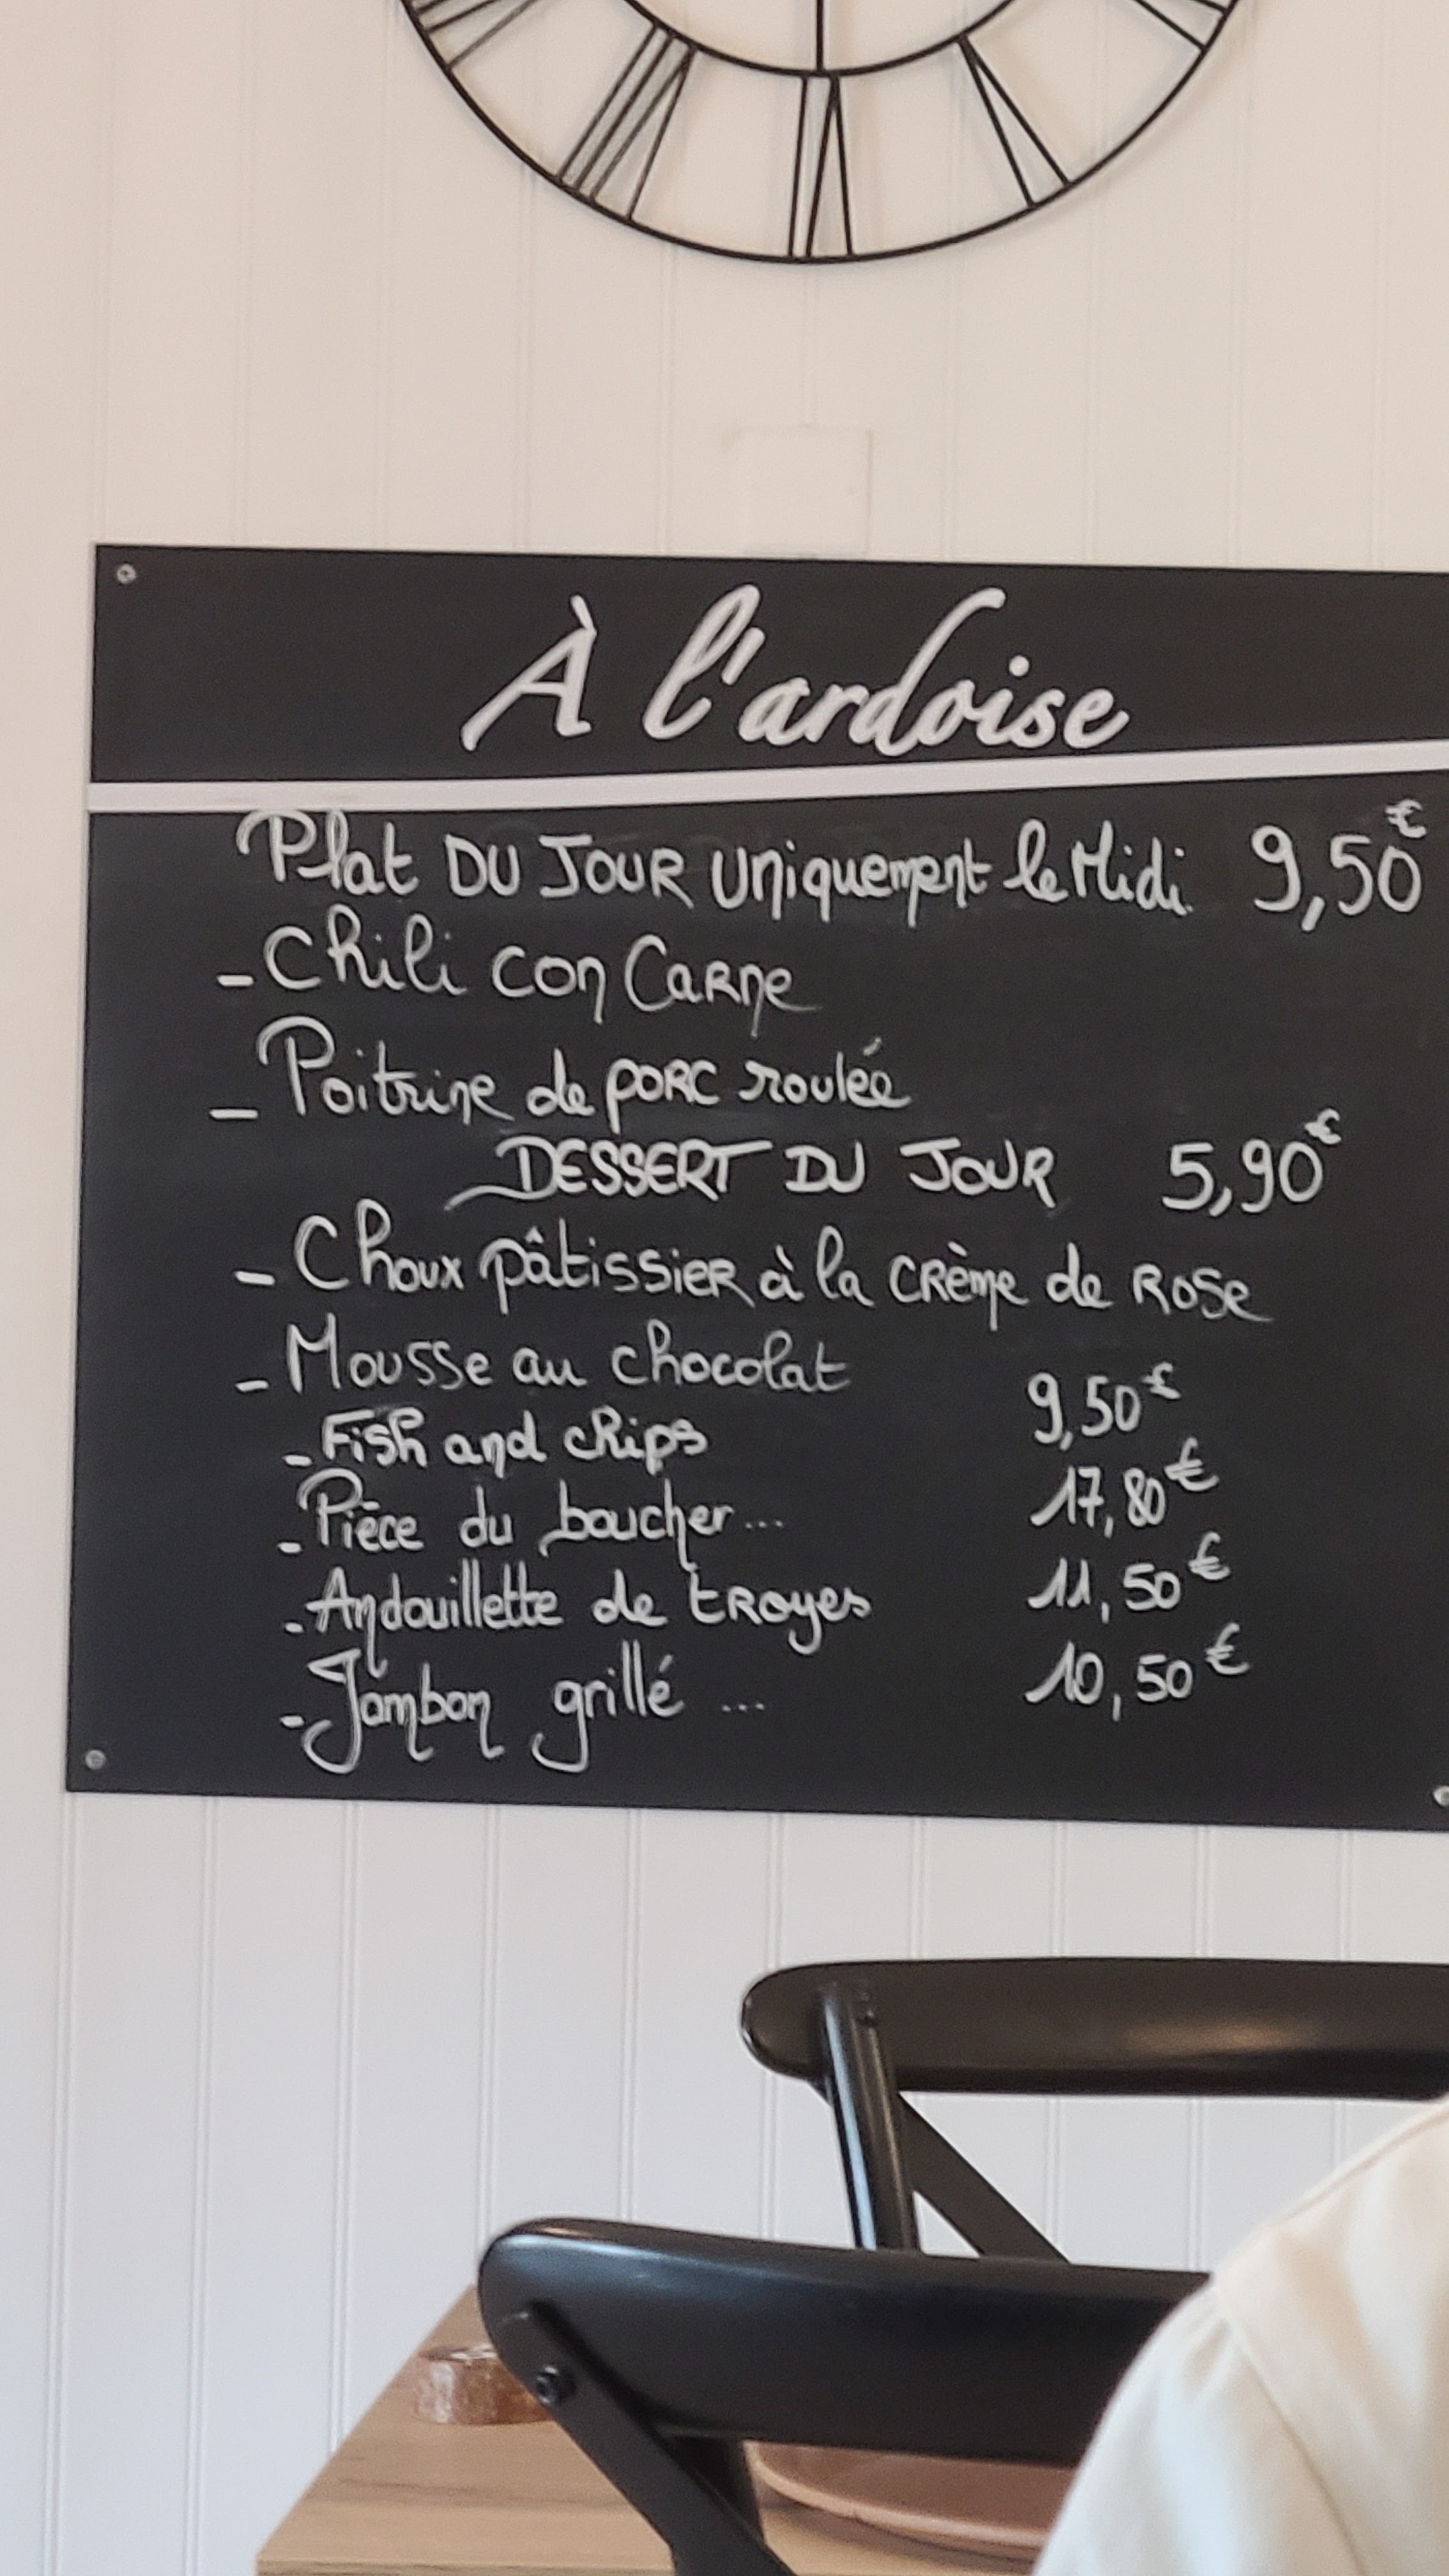 À l'ardoise
Plat DU JOUR uniquement le Midi 9,50€
- Chili con Carne
- Poitrine de porc roulée
DESSERT DU JOUR 5,90€
- Choux pâtissier à la crème de Rose
- Mousse au chocolat
- Fish and chips 9,50€
- Pièce du boucher... 17,80€
- Andouillette de troyes 11,50€
- Jambon grillé ... 10,50€